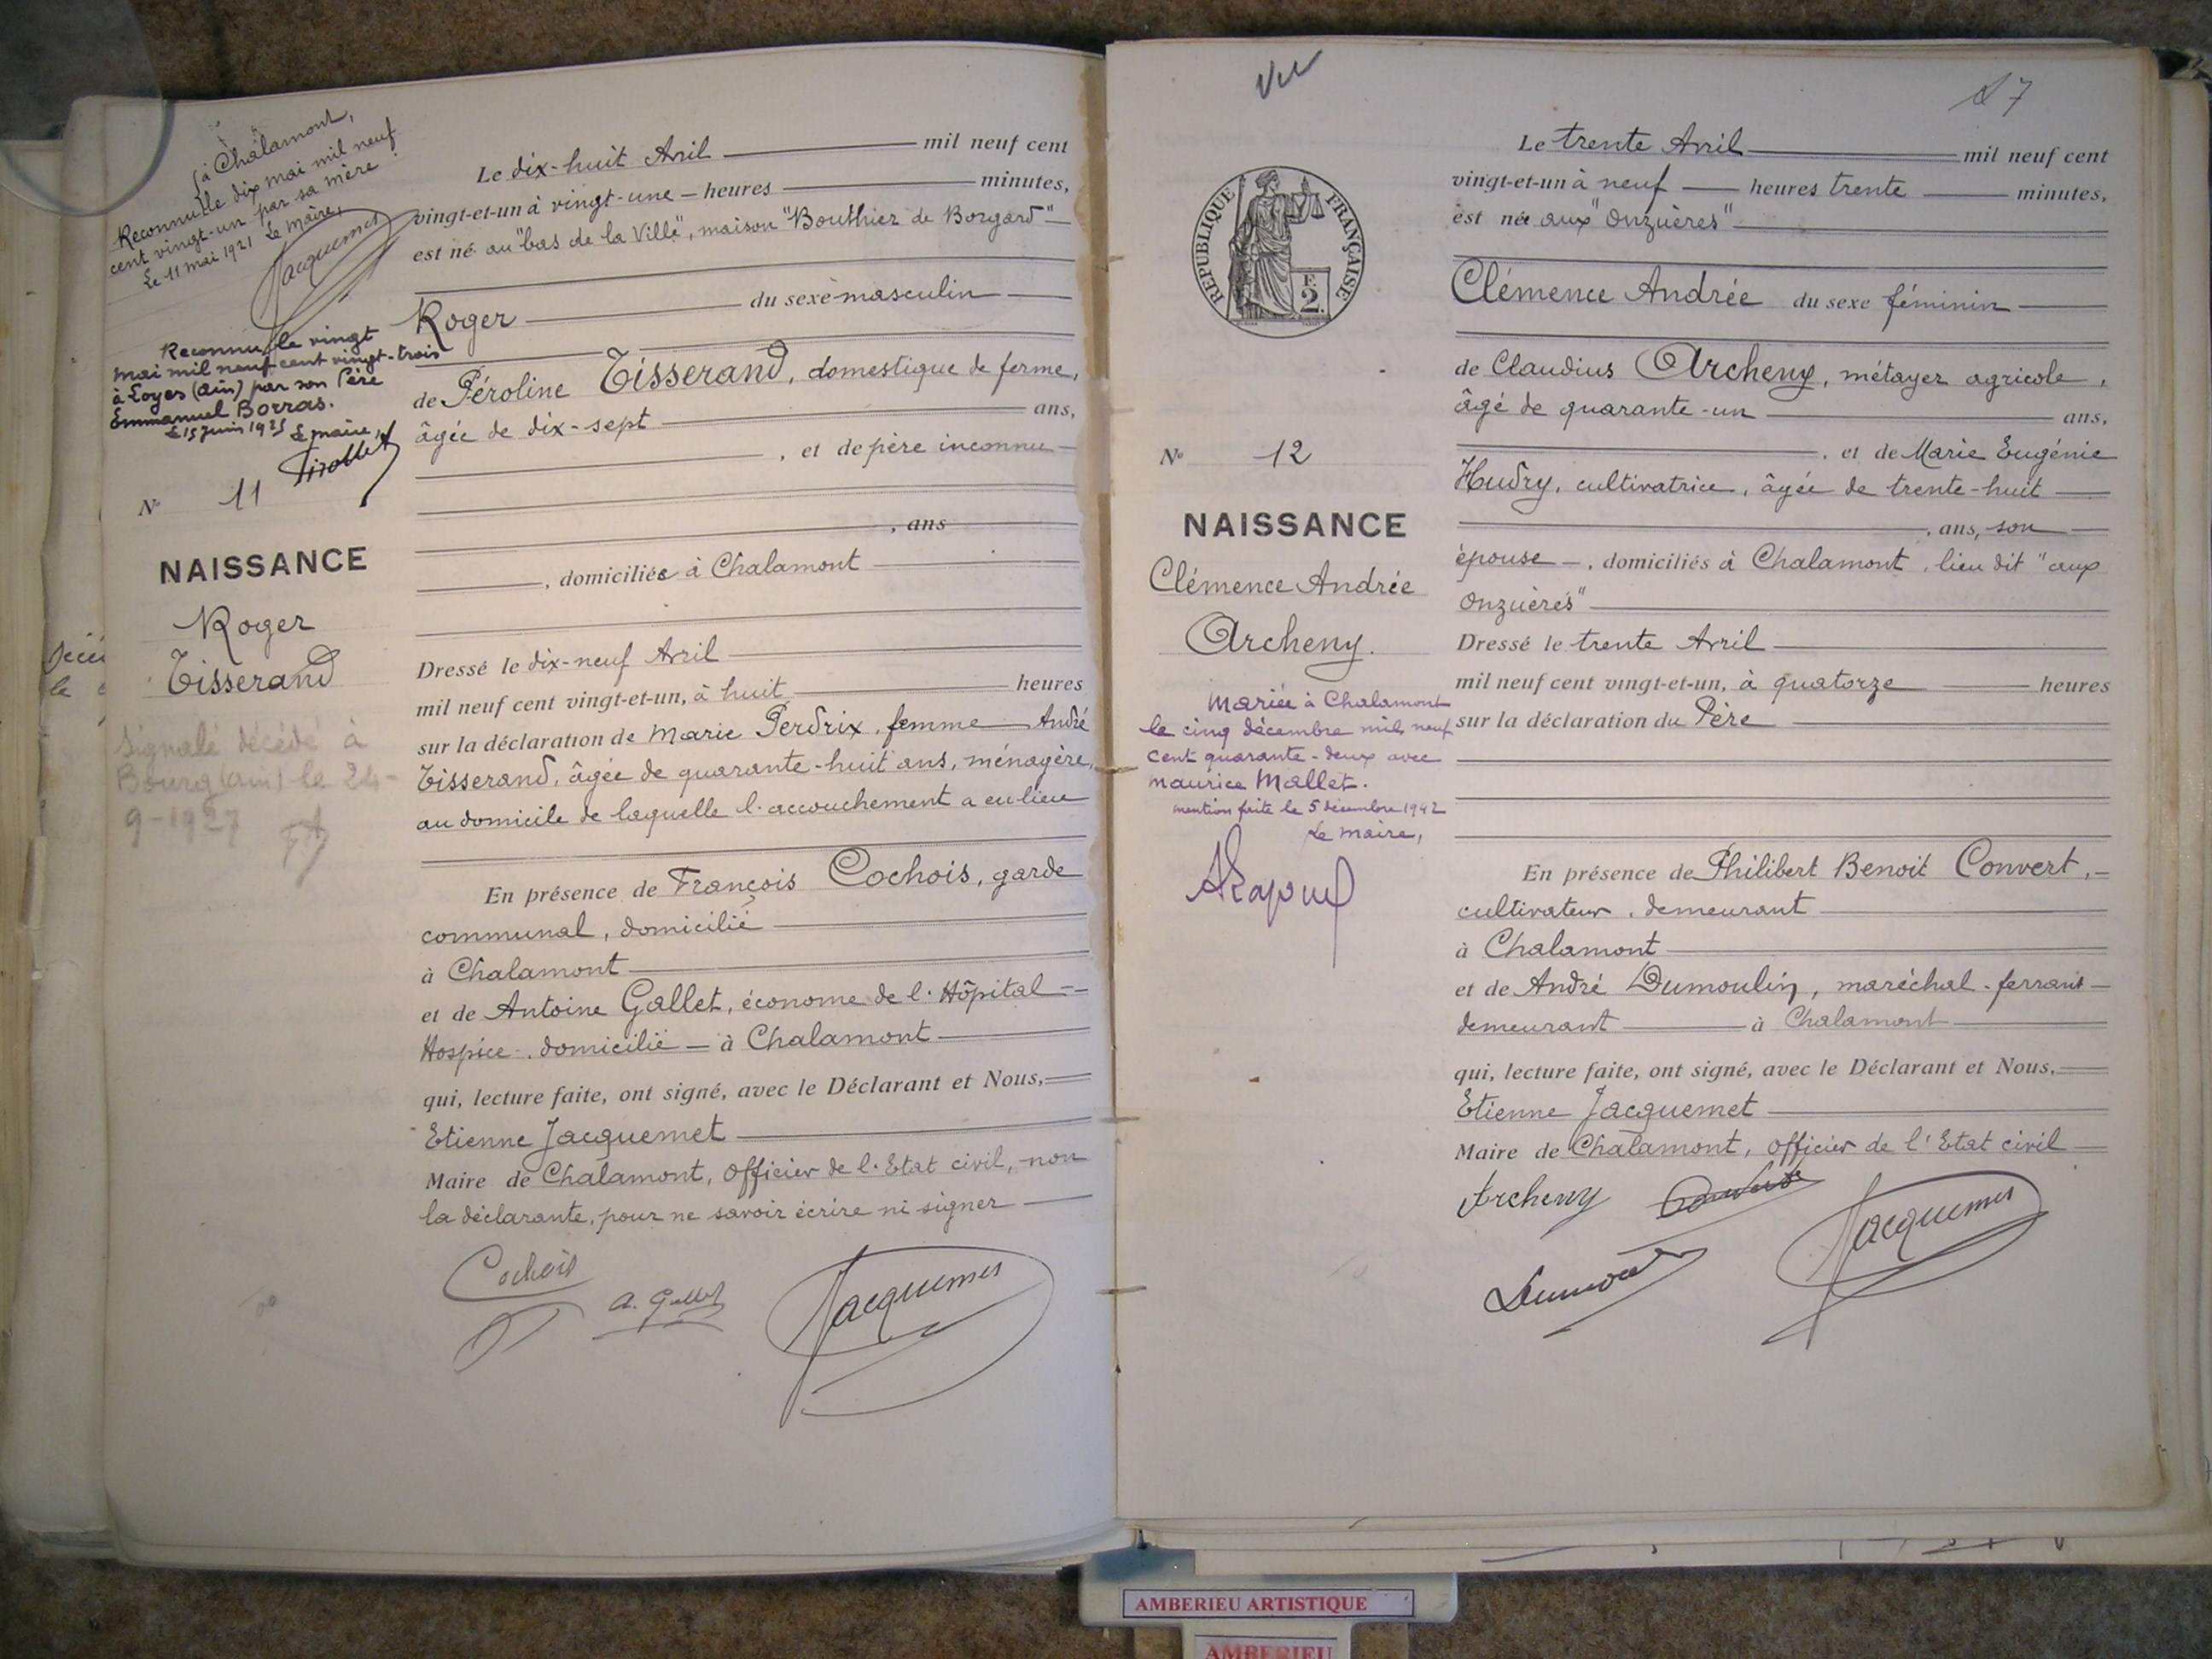 à Chalamont,
Reconnu le dix mai mil neuf
cent vingt-un par sa mère.
Le 11 mai 1921 Le Maire,
Jacquemet
Reconnu le vingt
mai mil neuf cent vingt-trois
à Loyes (Ain) par son Père
Emmanuel Borras.
Le maire,
N° 11
NAISSANCE
Roger
Tisserand
Signalé décédé à
Bourg (Ain) le 24-
9-1927
Le dix-huit Avril mil neuf cent
vingt-et-un à vingt-une heures minutes,
est né au "bas de la Ville", maison "Bouthier de Borgard"
Roger du sexe masculin
de Péroline Tisserand, domestique de ferme,
âgée de dix-sept ans,
, et de père inconnu
, ans
, domiciliée à Chalamont
Dressé le dix-neuf Avril
mil neuf cent vingt-et-un, à huit heures
sur la déclaration de Marie Perdrix, femme André
Tisserand, âgée de quarante-huit ans, ménagère,
au domicile de laquelle l'accouchement a eu lieu
En présence de François Cochois, garde
communal, domicilié
à Chalamont
et de Antoine Gallet, économe de l'Hôpital
Hospice, domicilié à Chalamont
qui, lecture faite, ont signé, avec le Déclarant et Nous,
Etienne Jacquemet
Maire de Chalamont, Officier de l'Etat civil, non
la déclarante, pour ne savoir écrire ni signer
Cochois
A. Gallet
Jacquemet
Vu
17
RÉPUBLIQUE FRANÇAISE
2
N° 12
NAISSANCE
Clémence Andrée
Archeny.
Mariée à Chalamont
le cinq décembre mil neuf
cent quarante-deux avec
Maurice Mallet.
mention faite le 5 décembre 1942
Le Maire,
Le trente Avril mil neuf cent
vingt-et-un à neuf heures trente minutes,
est née aux "Onzières"
Clémence Andrée du sexe féminin
de Claudius Archeny, métayer agricole,
âgé de quarante-un ans,
, et de Marie Eugénie
Hudry, cultivatrice, âgée de trente-huit
, ans, son
épouse, domiciliés à Chalamont, lieu dit "aux
Onzières"
Dressé le trente Avril
mil neuf cent vingt-et-un, à quatorze heures
sur la déclaration du Père
En présence de Philibert Benoit Convert,
cultivateur, demeurant
à Chalamont
et de André Dumoulin, maréchal-ferrant
demeurant à Chalamont
qui, lecture faite, ont signé, avec le Déclarant et Nous,
Etienne Jacquemet
Maire de Chalamont, Officier de l'Etat civil
Archeny Convert
Jacquemet
Dumoulin
AMBERIEU ARTISTIQUE
AMBERIEU